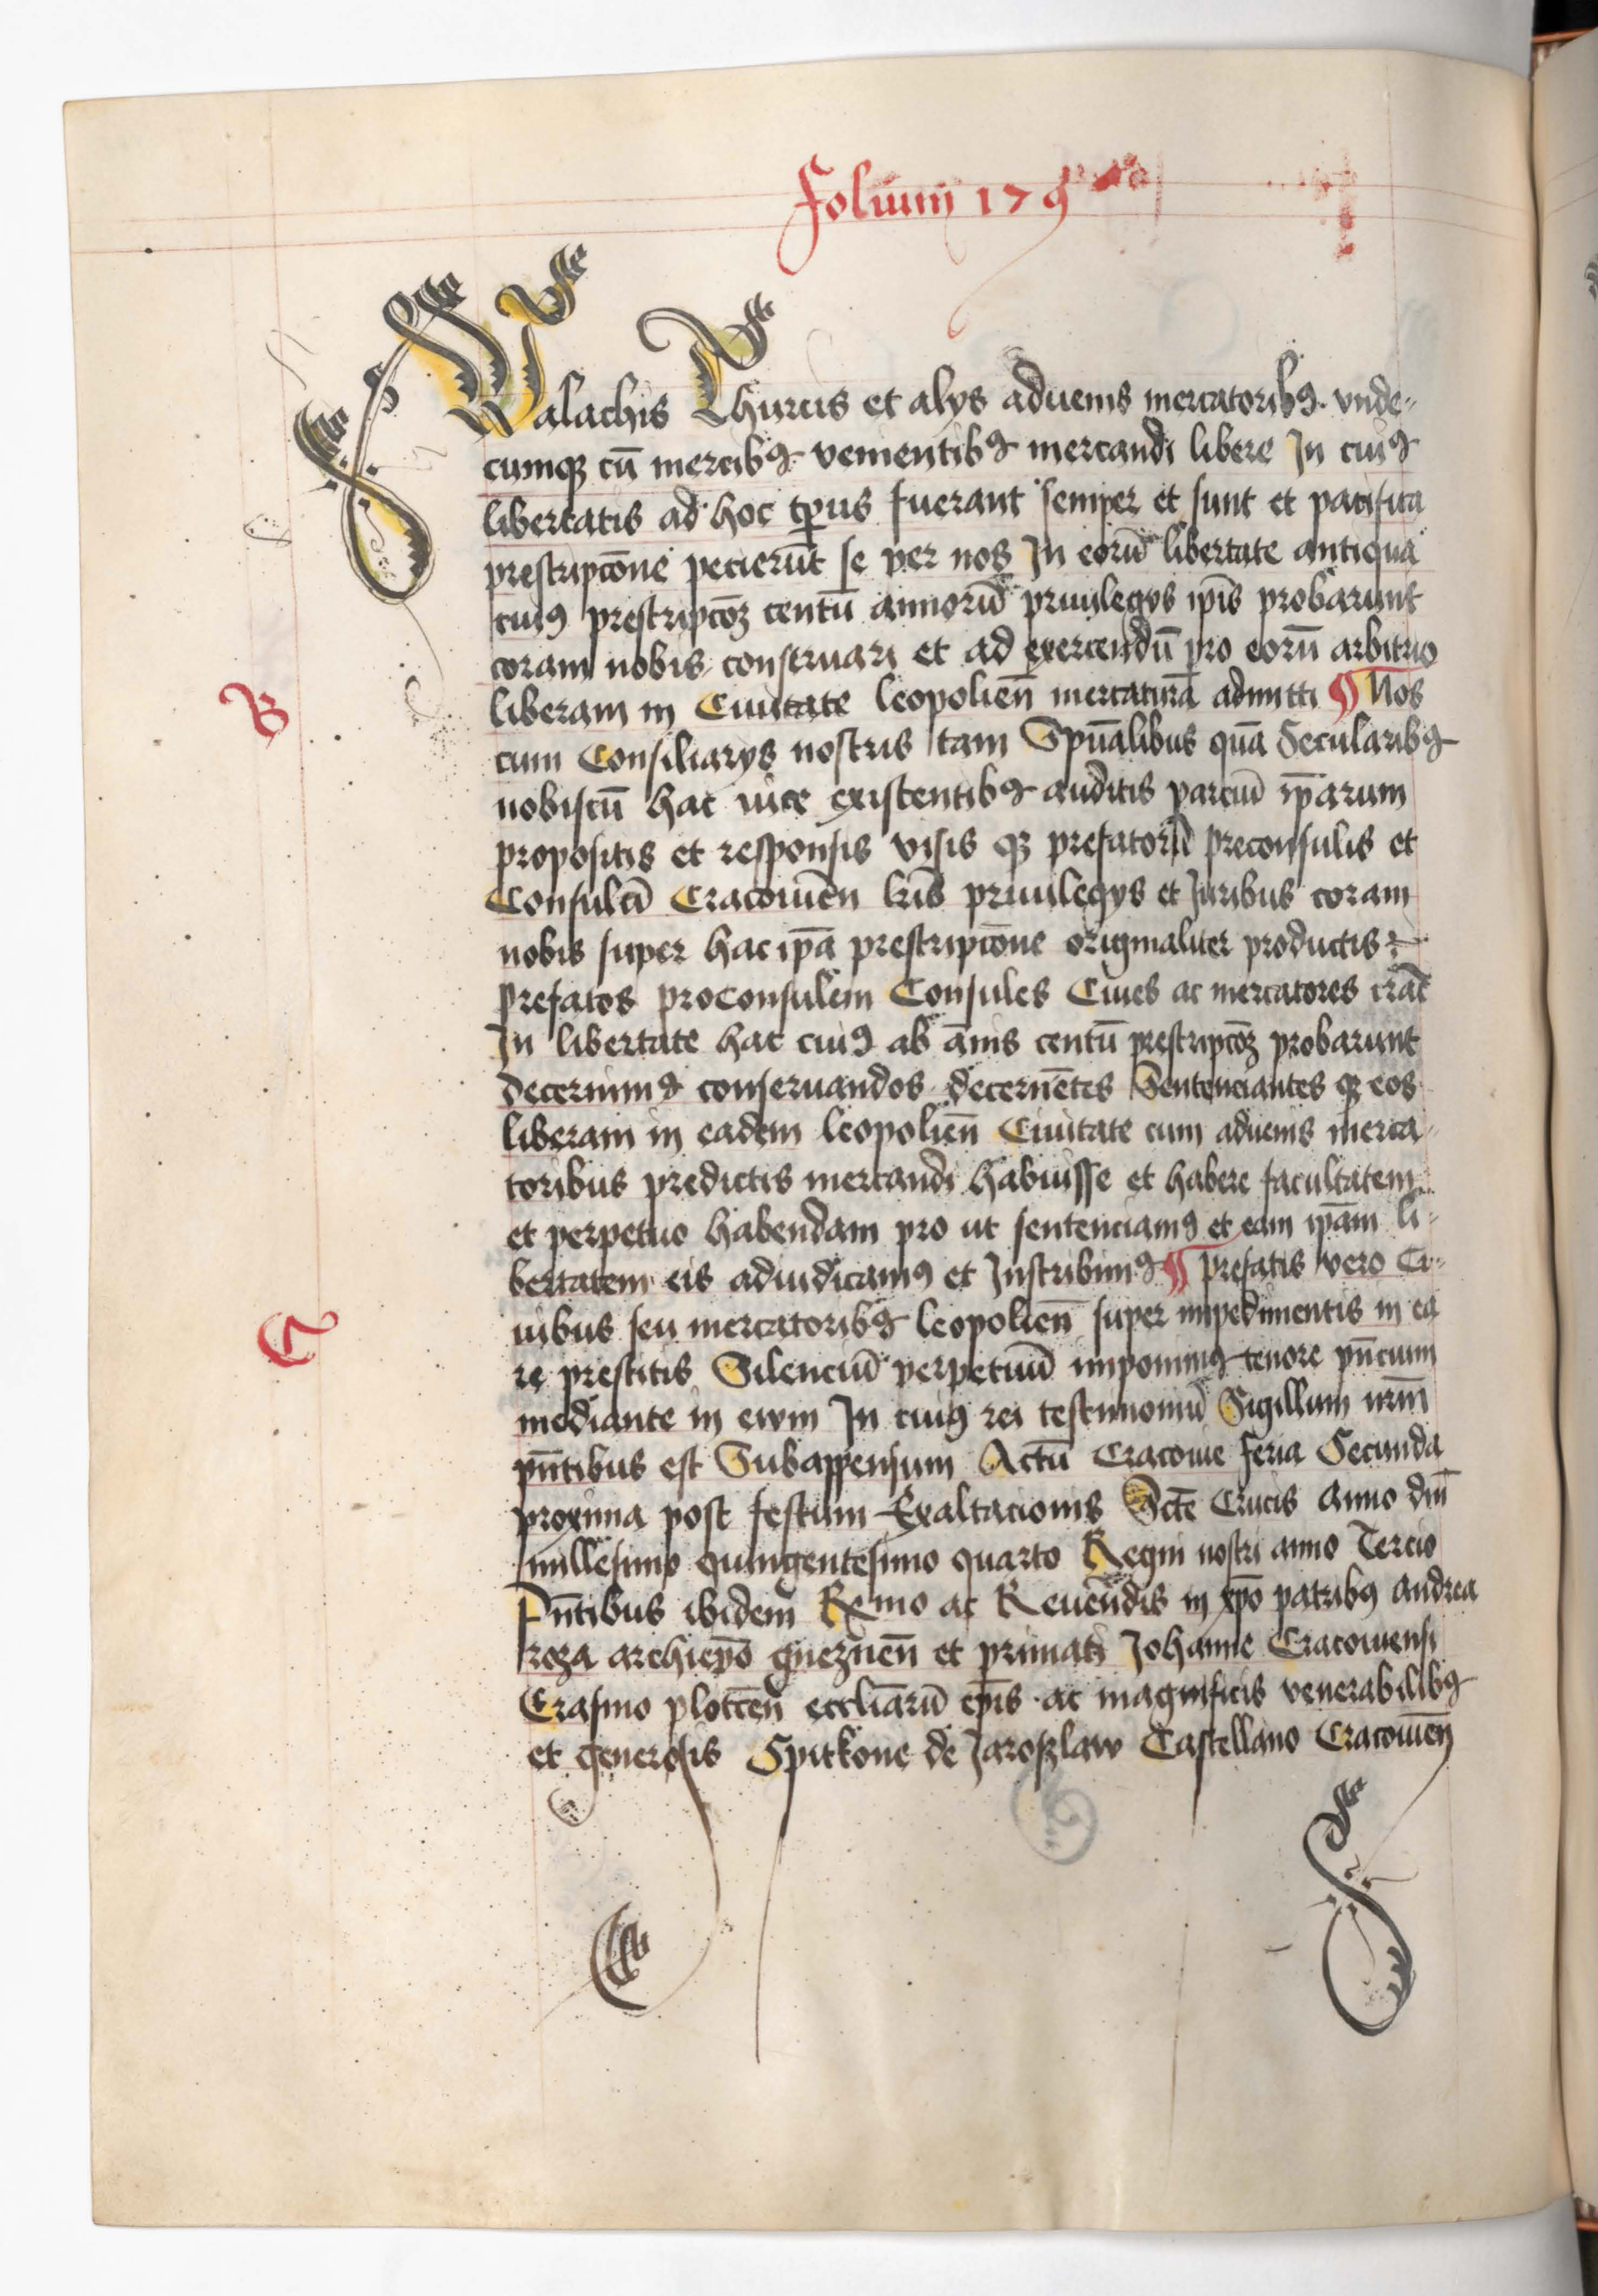 Folium 179
Walachis Thurcis et alys aduenis mercatoribꝰ vnde-
cumqꝫ cū mercibꝰ venientibꝰ mercandi libere In cuiꝰ
libertatis ad hoc tp̄us fuerant semper et sunt et pacifica
prescripcōne pecierūt se per nos In eorū libertate antiqua
cuiꝰ prescripcōꝫ centū annorū priuilegys ip̄is probarunt
coram nobis conseruari et ad exercendū pro eorū arbitrio
B
liberam in Ciuitate leopolien̄ mercaturā admitti ¶ Nos
cum Consiliarys nostris tam Spūalibus quā Secularibꝰ
nobiscū hac vice existentibꝰ auditis parciū ip̄arum
propositis et responsis visis qꝫ prefatorū preconsulis et
Consulū Cracouien̄ lr̄is priuilegys et Juribus coram
nobis super hac ip̄a prescripcōne originaliter productis
prefatos proconsulem Consules Ciues ac mercatores crac̄
In libertate hac cuiꝰ ab ānis centū prescripcōꝫ probarunt
decernimꝰ conseruandos decernētes Sentenciantes qꝫ eos
liberam in eadem leopolien̄ Ciuitate cum aduenis merca-
toribus predictis mercandi habuisse et habere facultatem
et perpetuo habendam pro ut sentenciamꝰ et eam ip̄am li-
bertatem eis adiudicamꝰ et Inscribimꝰ ¶ prefatis vero Ci-
C
uibus seu mercatoribꝰ leopolien̄ super impedimentis in ea
re prestitis Silenciū perpetuū imponimꝰ tenore pn̄cium
mediante in ewm In cuiꝰ rei testimoniū Sigillum nr̄m
pn̄tibus est Subappensum Actū Cracouie feria Secunda
proxima post festum Exaltacionis Scte Crucis Anno dn̄i
millesimo quingentesimo quarto Regni nostri anno Tercio
Pn̄tibus ibidem Rx̄mo ac Reuen̄dis in xp̄o patribꝰ Andrea
roza archiep̄o gneznen̄ et primate Johanne Cracouiensi
Erasmo plotcen̄ eccliārū ep̄is ac magnificis venerabilibꝰ
et generosis Spitkone de Jaroszlaw Castellano Cracouien̄